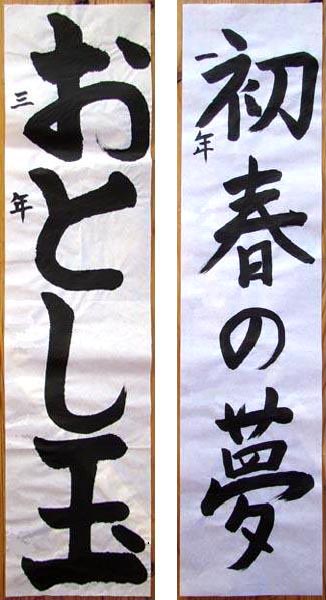 初春の夢
一年
おとし玉
三年